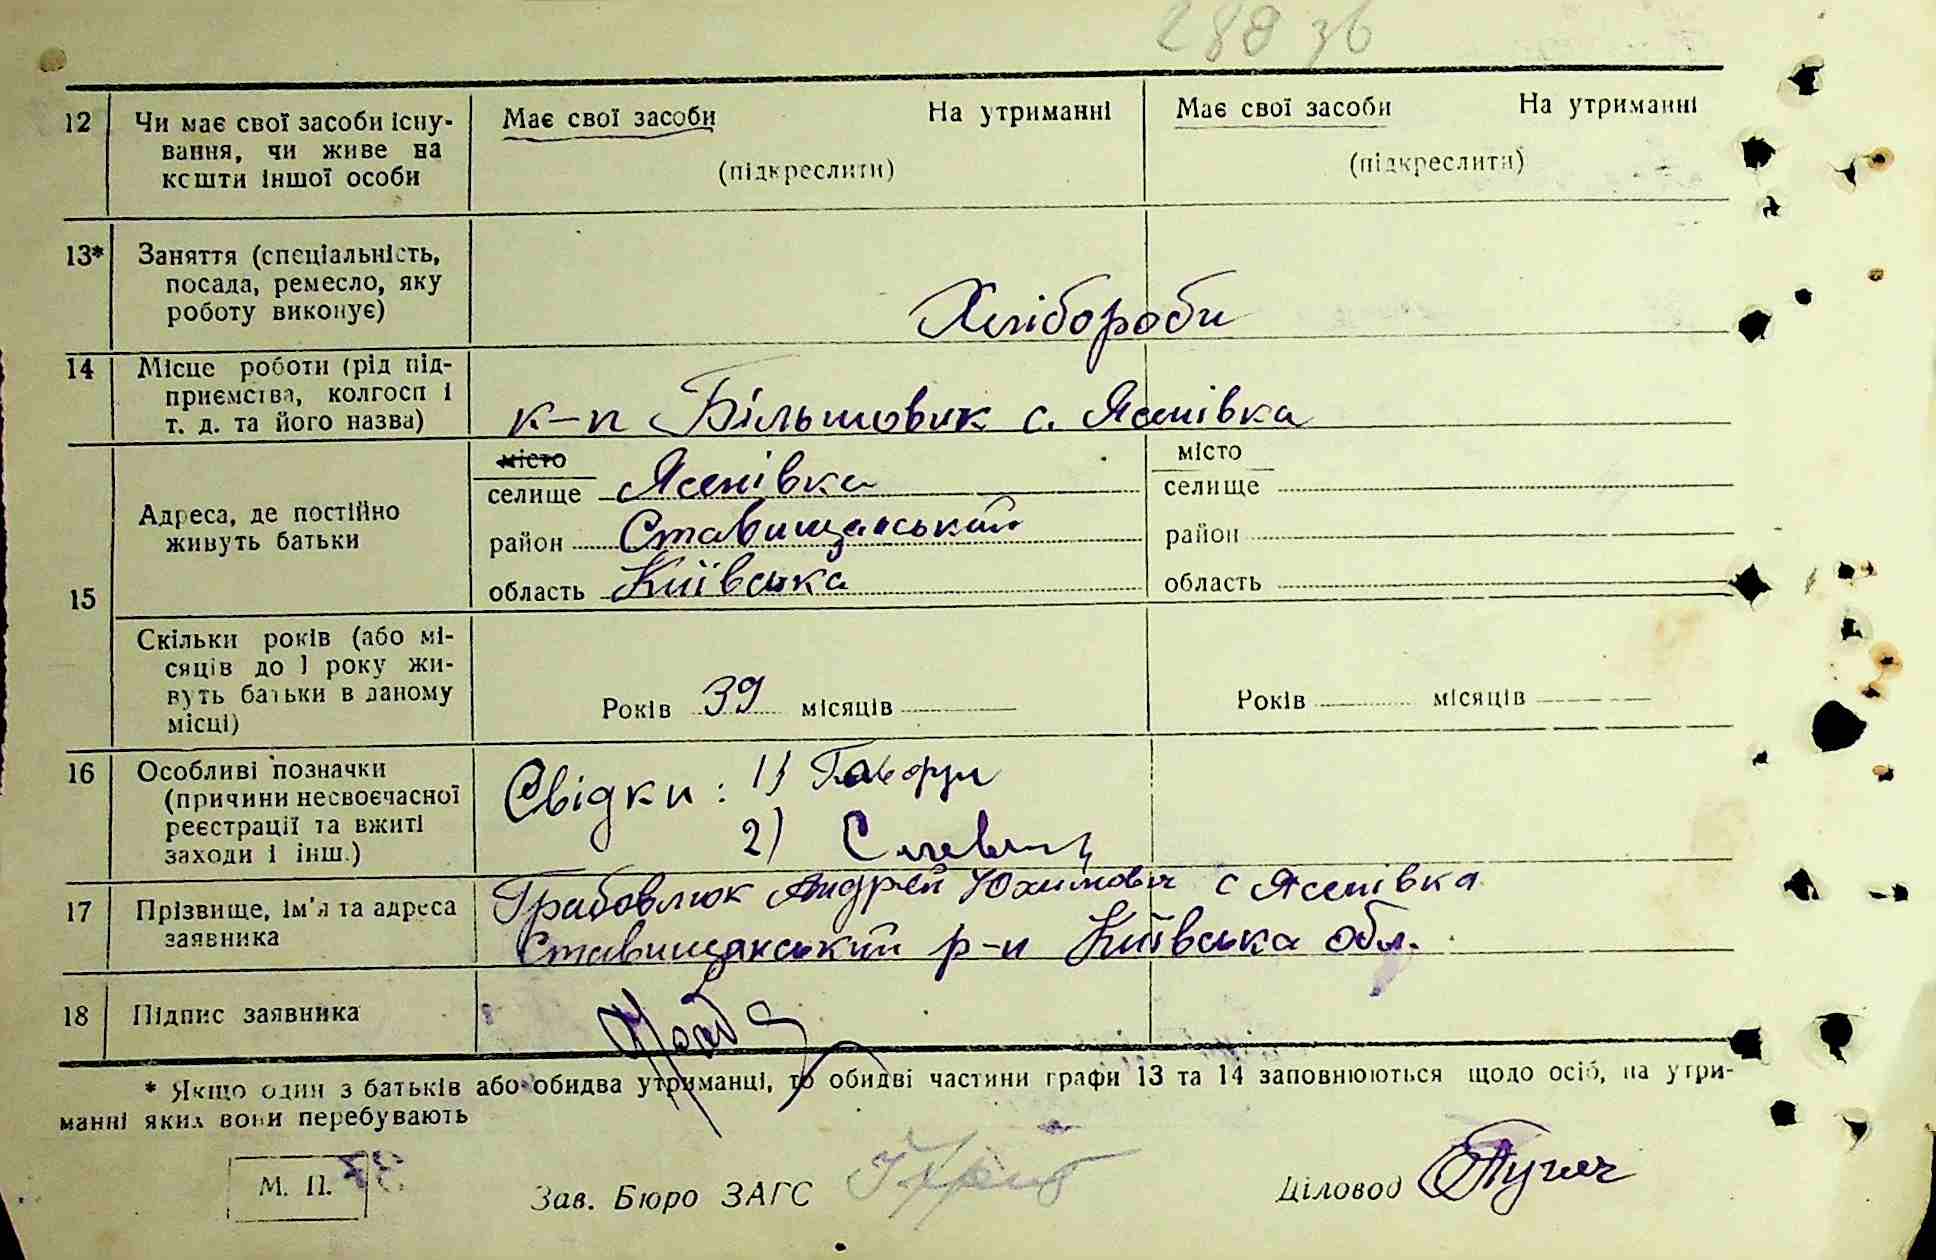 288 зв
12 Чи має свої засоби існу-
вання, чи живе на
кошти іншої особи
Має свої засоби На утриманні
(підкреслити)
Має свої засоби На утриманні
(підкреслити)
13* Заняття (спеціальність,
посада, ремесло, яку
роботу виконує)
Хлібороби
14 Місце роботи (рід під-
приємства, колгосп і
т. д. та його назва)
к-п Більшовик с. Ясенівка
15 Адреса, де постійно
живуть батьки
місто
селище Ясенівка
район Ставищанський
область Київська
місто
селище
район
область
Скільки років (або мі-
сяців до 1 року жи-
вуть батьки в даному
місці)
Років 39 місяців
Років місяців
16 Особливі позначки
(причини несвоєчасної
реєстрації та вжиті
заходи і інш.)
Свідки: 1)
2)
17 Прізвище, ім'я та адреса
заявника
Грабовлюк Андрей Юхимович с Ясенівка
Ставищанський р-н Київська обл.
18 Підпис заявника
* Якщо один з батьків або обидва утриманці, то обидві частини графи 13 та 14 заповнюються щодо осіб, на утри-
манні яких вони перебувають
М. П.
Зав. Бюро ЗАГС
Діловод